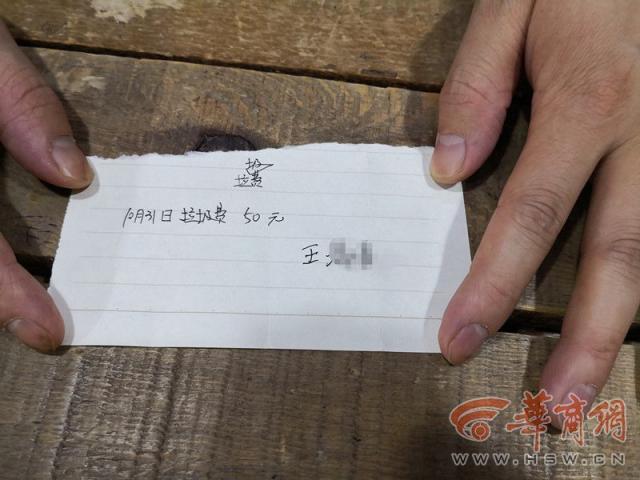 垃圾费
10月31日 垃圾费 50元
王
華商網
WWW.HSW.CN